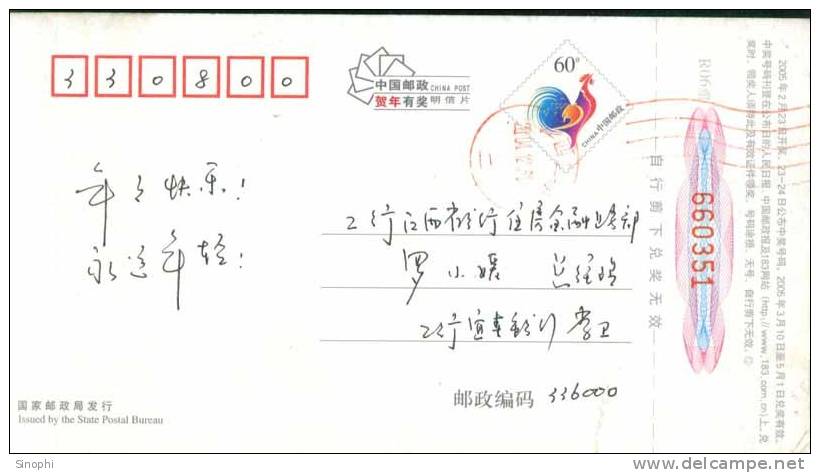 3 3 0 8 0 0
中国邮政 CHINA POST
贺年有奖 明信片
60分
中国邮政
CHINA
年年快乐!
永远年轻!
工行江西省分行住房金融业务部
罗小媛 总经理
工行宜春分行 李卫
邮政编码 336000
国家邮政局发行
Issued by the State Postal Bureau
自行剪下兑奖无效
660351
2005年2月23日开奖,23-24日公布中奖号码。2005年3月10日至5月1日兑奖有效。
中奖号码刊登在公布日的人民日报、中国邮政报及183网站(http://www.183.com.cn)上。兑
奖时,需奖人须持此及有效证件领奖。号码涂损、无号、自行剪下无效。
Sinophi
delcampe.net